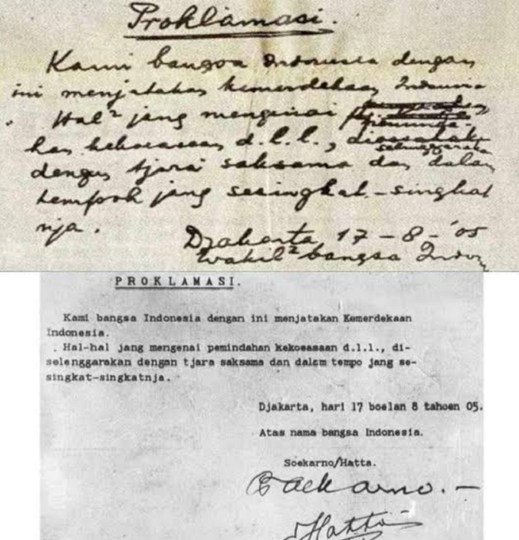 Proklamasi.
Kami bangsa Indonesia dengan
ini menjatakan kemerdekaan Indonesia
. Hal² jang mengenai
kekoeasaan d.l.l.,
dengan tjara saksama dan dalam
tempoh jang sesingkat-singkat
nja.
Djakarta 17 - 8 - '05
Wakil² bangsa
PROKLAMASI.
Kami bangsa Indonesia dengan ini menjatakan Kemerdekaan
Indonesia.
. Hal-hal jang mengenai pemindahan kekoeasaan d.l.l., di-
selenggarakan dengan tjara saksama dan dalam tempo jang se-
singkat-singkatnja.
Djakarta, hari 17 boelan 8 tahoen 05.
Atas nama bangsa Indonesia.
Soekarno/Hatta.
Soekarno. -
Hatta